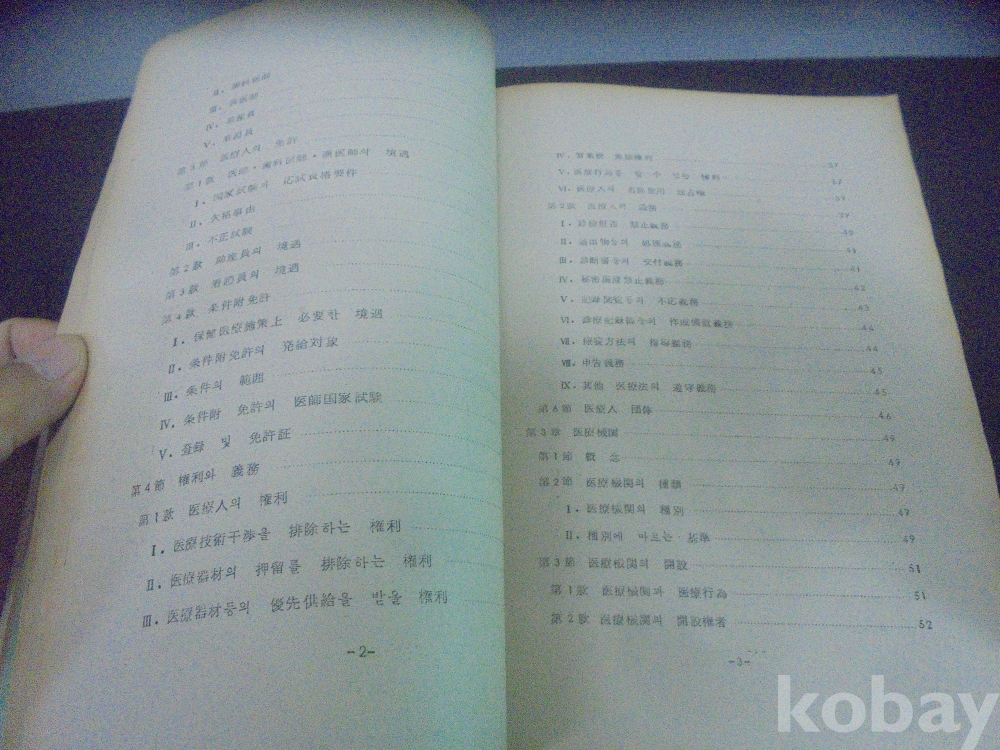 II. 歯科医師
IV. 助産員
V. 看護員
第3節 医療人의 免許
第1款 医師・歯科医師・漢医師의 境遇
I. 国家試験의 応試資格要件
II. 欠格事由
III. 不正試験
第2款 助産員의 境遇
第3款 看護員의 境遇
第4款 条件附免許
I. 保健医療施策上 必要한 境遇
II. 条件附免許의 発給対象
III. 条件의 範囲
IV. 条件附 免許의 医師国家試験
V. 登録 및 免許証
第4節 権利와 義務
第1款 医療人의 権利
I. 医療技術干渉을 排除하는 権利
II. 医療器材의 押留를 排除하는 権利
III. 医療器材등의 優先供給을 받을 権利
-2-
IV. 37
V. 医療行為를 権利 37
VI. 医療人의 39
第2款 医療人의 義務 39
I. 禁止義務 40
II. 義務 41
III. 診断書등의 交付義務 41
IV. 秘密漏泄禁止義務 42
V. 記録閲覧등의 不応義務 43
VI. 診療記録部등의 作成備置義務 44
VII. 方法의 指導義務 44
VIII. 申告義務 45
IX. 其他 医療法의 遵守義務 45
第6節 医療人 団体 46
第3章 医療機関 49
第1節 概念 49
第2節 医療機関의 種類 49
I. 医療機関의 種別 49
II. 種別에 따르는 基準 49
第3節 医療機関의 開設 51
第1款 医療機関과 医療行為 51
第2款 医療機関의 開設権者 52
-3-
kobay